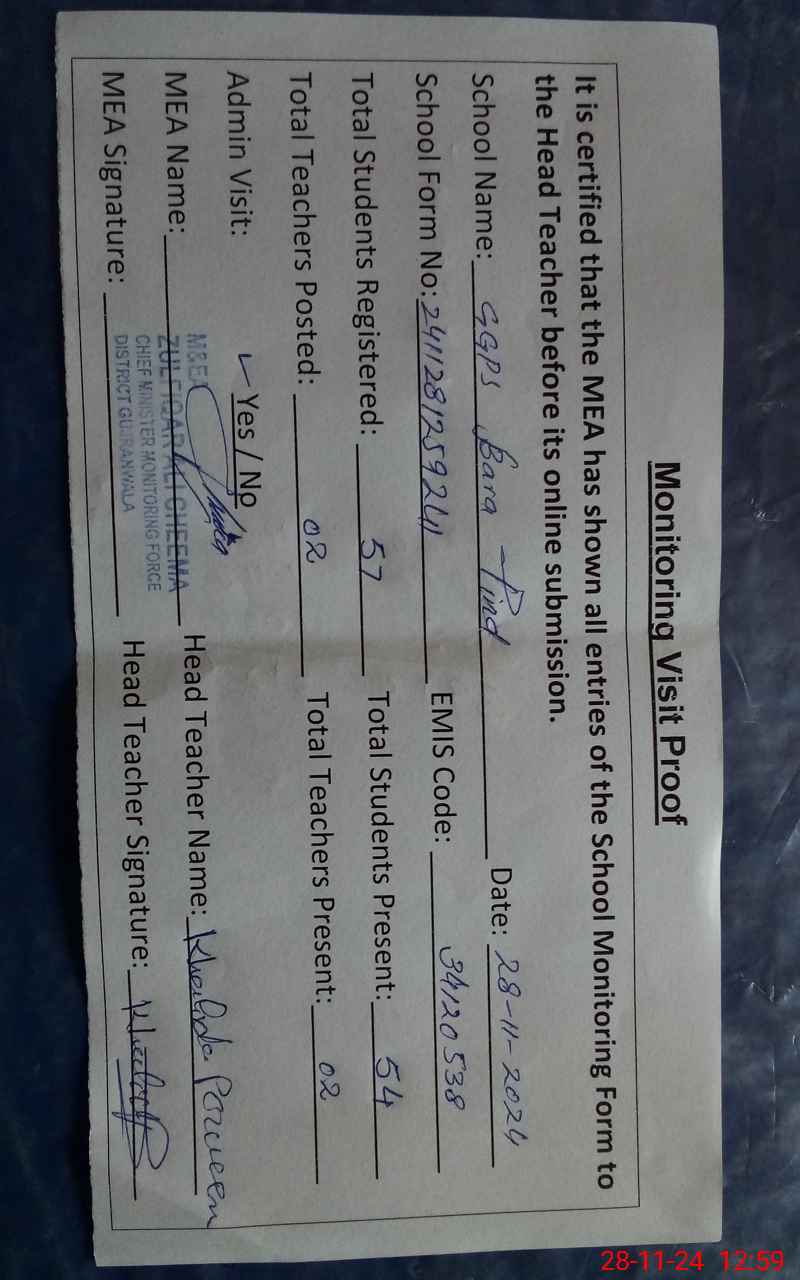 Monitoring Visit Proof
It is certified that the MEA has shown all entries of the School Monitoring Form to
the Head Teacher before its online submission.
School Name: GGPS Bara Pind Date: 28-11-2024
School Form No: 241128125924 EMIS Code: 34120538
Total Students Registered: 57 Total Students Present: 54
Total Teachers Posted: 02 Total Teachers Present: 02
Admin Visit: ✓ Yes / No
MEA Name: Head Teacher Name: Khalida Parveen
M&EA
ZULFIQAR ALI CHEEMA
CHIEF MINISTER MONITORING FORCE
DISTRICT GUJRANWALA
MEA Signature: Head Teacher Signature:
28-11-24 12:59